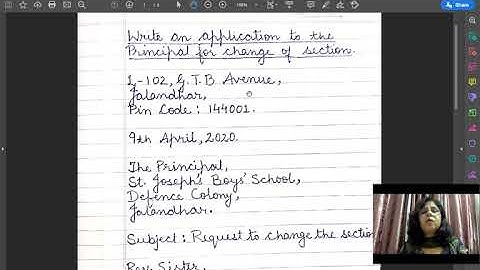 Write an application to the
Principal for change of section.
L-102, G.T.B. Avenue,
Jalandhar,
Pin Code: 144001.
9th April, 2020.
The Principal,
St. Joseph's Boys' School,
Defence Colony,
Jalandhar.
Subject: Request to change the section
Rev. Sister,